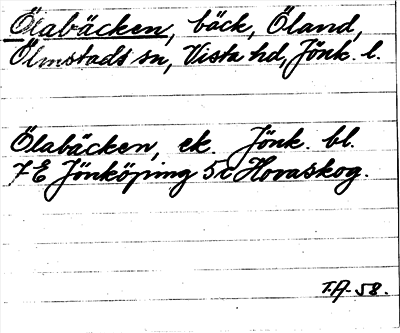 Ölabäcken, bäck, Öland,
Ölmstads sn, Vista hd, Jönk. l.
Ölabäcken, ek. Jönk. bl.
7E Jönköping 5c Hovaskog.
T.A-58.